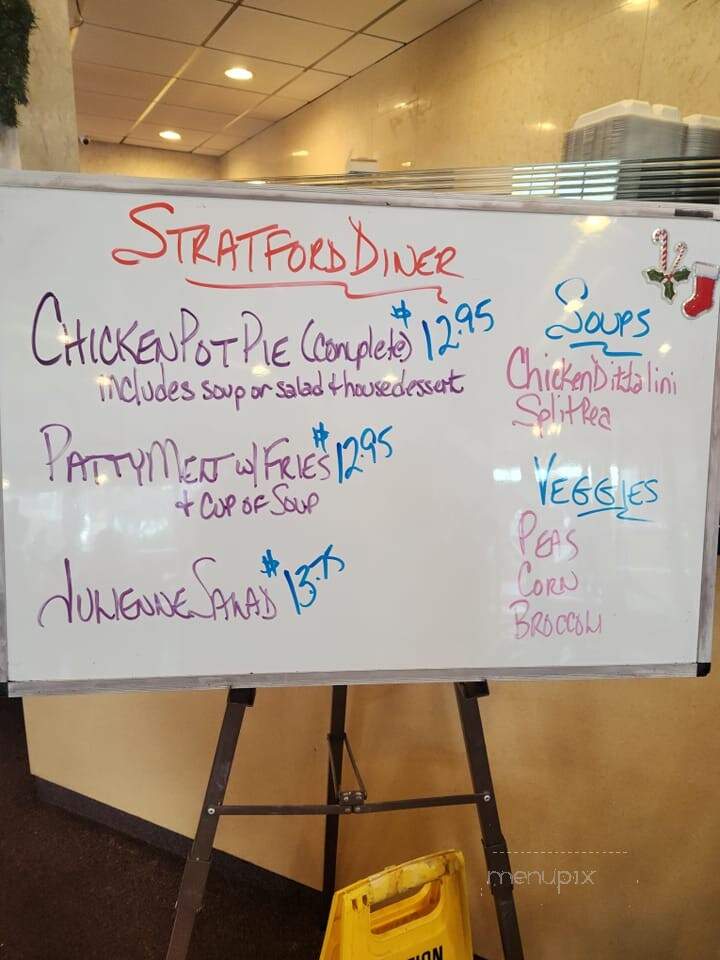 STRATFORD DINER
CHICKEN POT PIE (complete) $12.95
includes soup or salad + house dessert
PATTY MELT w/ FRIES $12.95
+ CUP OF SOUP
JULIENNE SALAD $13.75
SOUPS
Chicken Dittalini
Split Pea
VEGGIES
PEAS
CORN
BROCCOLI
menupix
ION